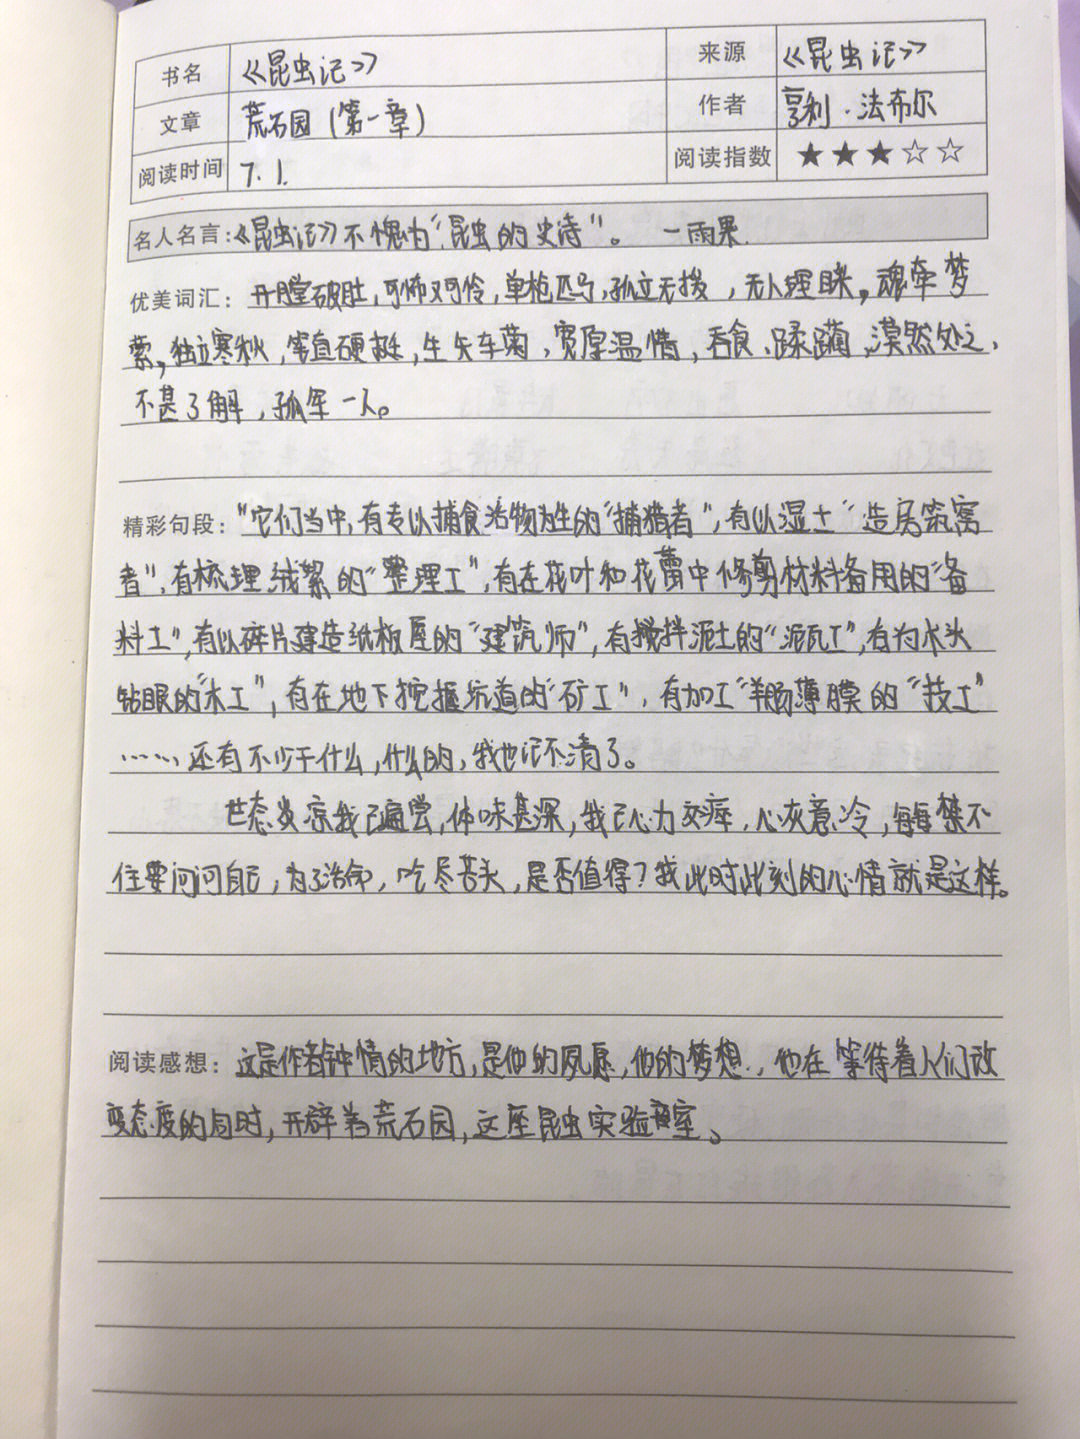 书名 《昆虫记》 来源 《昆虫记》
文章 荒石园(第一章) 作者 亨利·法布尔
阅读时间 7.1. 阅读指数 ★★★☆☆
名人名言:《昆虫记》不愧为“昆虫的史诗”。 一雨果.
优美词汇: 开膛破肚,可怖又可怜,单枪匹马,孤立无援,无人理睬,魂牵梦
萦,独立寒秋,笔直硬挺,生矢车菊,宽厚温情,吞食、蹂躏、漠然处之、
不甚了解,孤军一人。
精彩句段: “它们当中,有专以捕食活物为生的“捕猎者”,有以湿土“造房筑窝
者”,有梳理绒絮的“整理工”,有在花叶和花蕾中修剪材料备用的“备
料工”,有以碎片建造纸板屋的“建筑师”,有搅拌泥土的“泥瓦工”,有为木头
钻眼的“木工”,有在地下挖掘坑道的“矿工”,有加工“羊肠薄膜的“技工”
……还有不少干什么,什么的,我也记不清了。
世态炎凉我已遍尝,体味甚深,我已心力交瘁,心灰意冷,每每禁不
住要问问自己,为了活命,吃尽苦头,是否值得?我此时此刻的心情就是这样。
阅读感想: 这是作者钟情的地方,是他的夙愿,他的梦想.,他在等待着人们改
变态度的同时,开辟着荒石园,这座昆虫实验室。